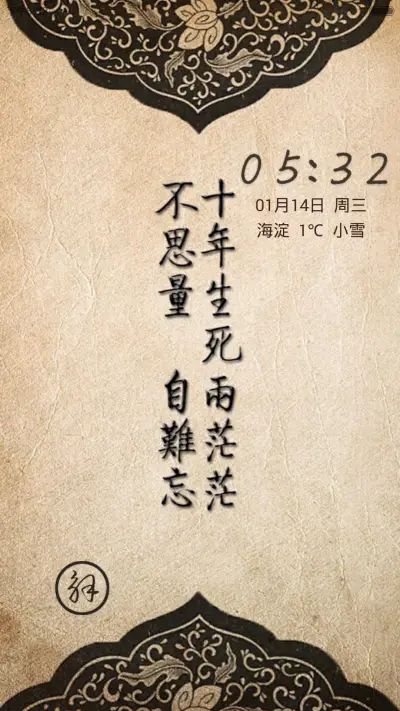 05:32
01月14日 周三
海淀 1℃ 小雪
十年生死兩茫茫
不思量 自難忘
解